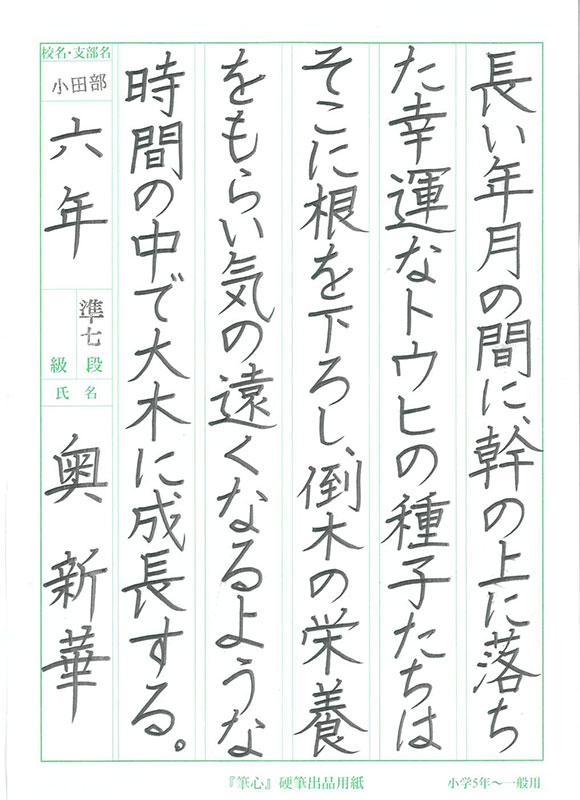 長い年月の間に、幹の上に落ち
た幸運なトウヒの種子たちは
そこに根を下ろし、倒木の栄養
をもらい気の遠くなるような
時間の中で大木に成長する。
校名・支部名
小田部
六年
準七
段
級
氏名
奥新華
『筆心』硬筆出品用紙
小学5年～一般用